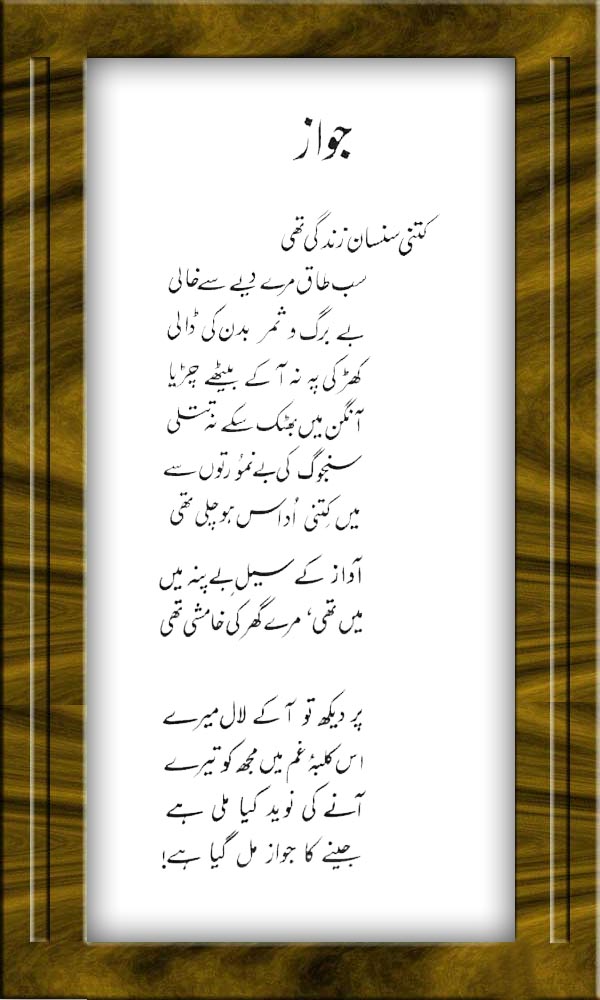 جواز
کتنی سنسان زندگی تھی
سب طاق مرے دیے سے خالی
بے برگ و ثمر بدن کی ڈالی
کھڑکی پہ نہ آ کے بیٹھے چڑیا
آنگن میں بھٹک سکے نہ تتلی
سنجوگ کی بے نمو رتوں سے
میں کِتنی اُداس ہو چلی تھی
آواز کے سیلِ بے پنہ میں
میں تھی، مرے گھر کی خامشی تھی
پر دیکھ تو آ کے لال میرے
اس کلبۂ غم میں مجھ کو تیرے
آنے کی نوید کیا ملی ہے
جینے کا جواز مل گیا ہے!